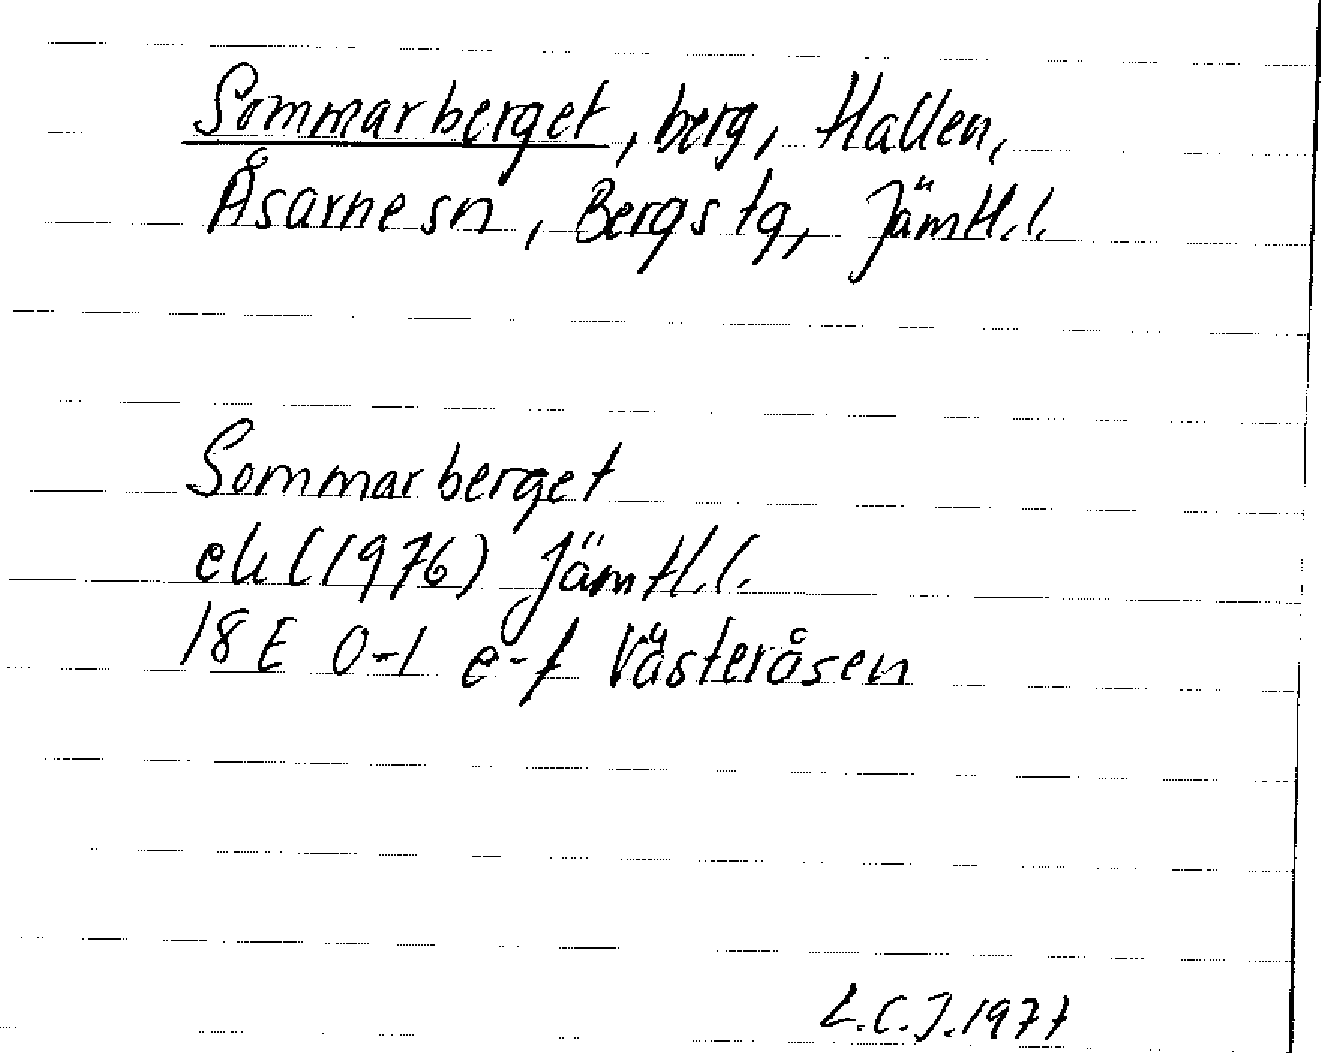 Sommarberget, berg, Hallen,
Åsarne sn, Bergs tg, Jämtl.l.
Sommarberget
ek (1976) Jämtl.l.
18 E 0-1 e-f Västeråsen
L.C.J. 1977